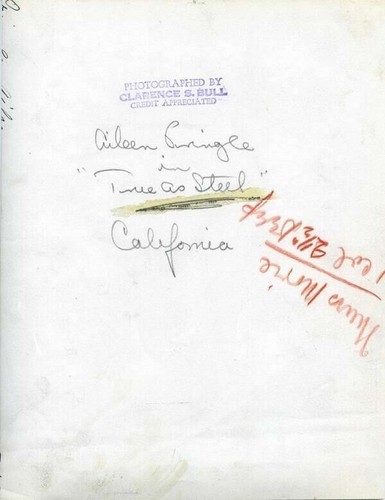 PHOTOGRAPHED BY
CLARENCE S. BULL
CREDIT APPRECIATED
Aileen Pringle
in
"True as Steel"
California
1 col 2½" deep